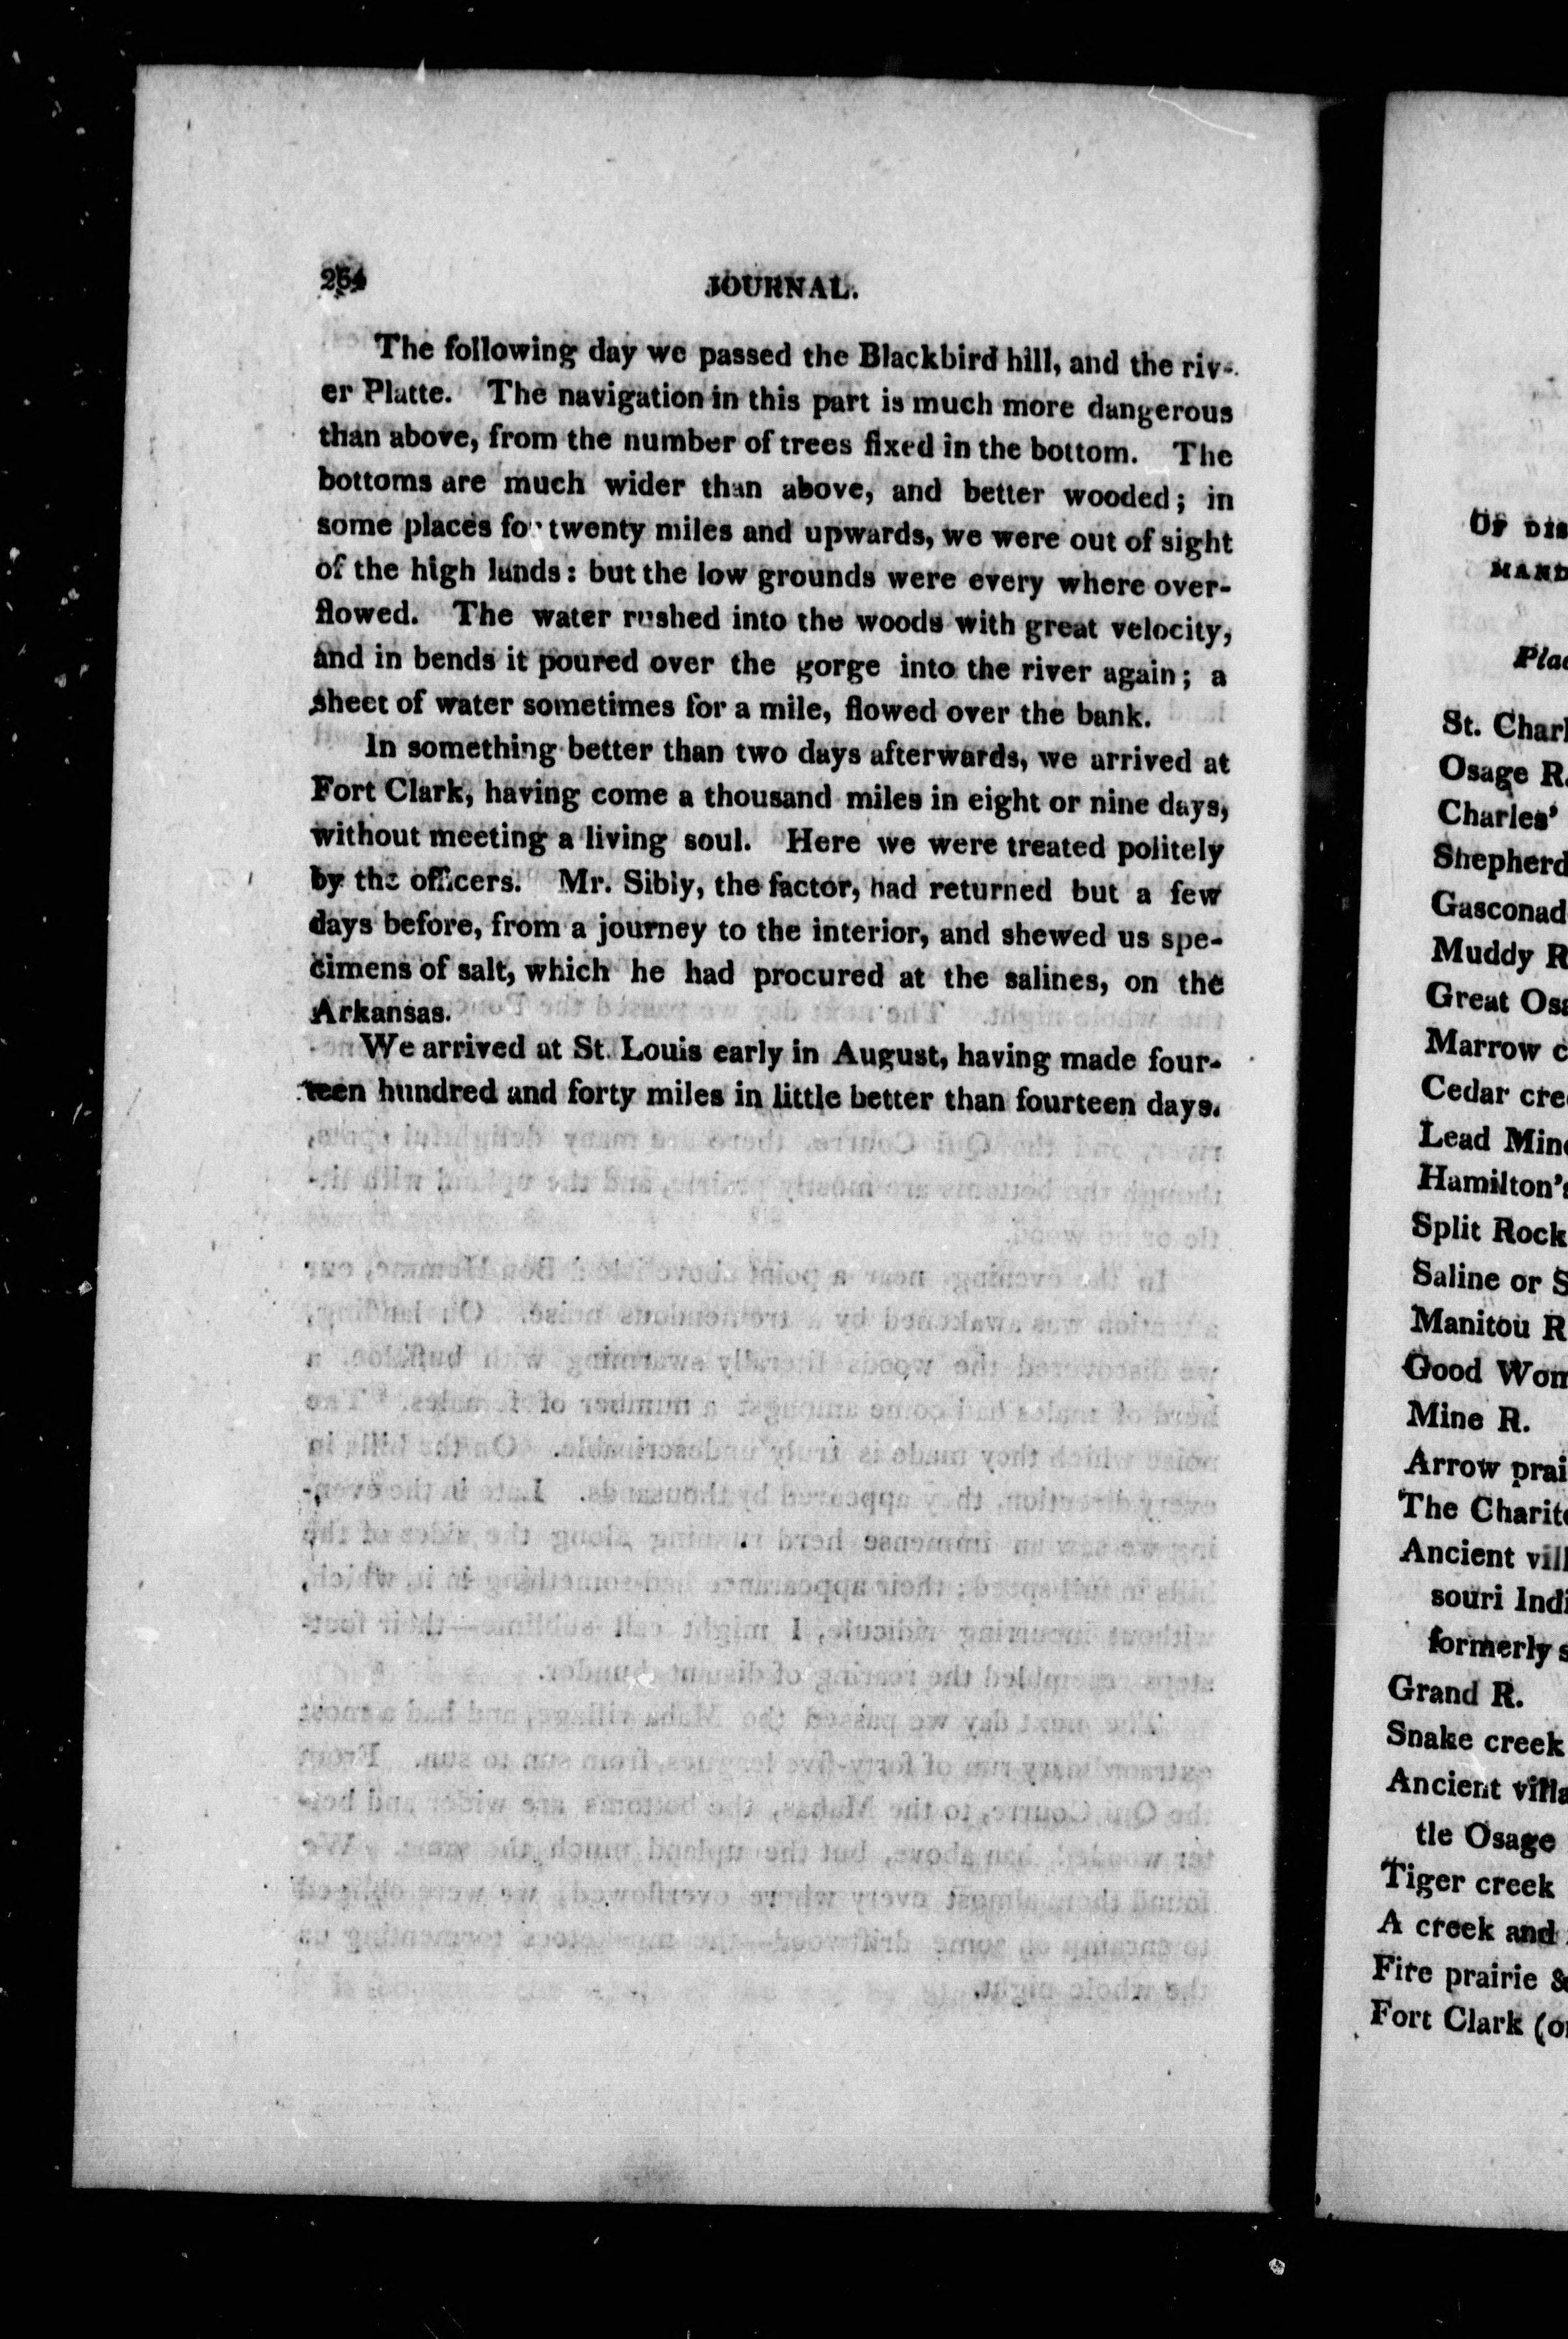 264
JOURNAL.
The following day we passed the Blackbird hill, and the riv-
er Platte. The navigation in this part is much more dangerous
than above, from the number of trees fixed in the bottom. The
bottoms are much wider than above, and better wooded; in
some places for twenty miles and upwards, we were out of sight
of the high lands: but the low grounds were every where over-
flowed. The water rushed into the woods with great velocity,
and in bends it poured over the gorge into the river again; a
sheet of water sometimes for a mile, flowed over the bank.
In something better than two days afterwards, we arrived at
Fort Clark, having come a thousand miles in eight or nine days,
without meeting a living soul. Here we were treated politely
by the officers. Mr. Sibly, the factor, had returned but a few
days before, from a journey to the interior, and shewed us spe-
cimens of salt, which he had procured at the salines, on the
Arkansas.
We arrived at St. Louis early in August, having made four-
teen hundred and forty miles in little better than fourteen days.
OF DIS
MAND
Plac
St. Charl
Osage R.
Charles'
Shepherd
Gasconad
Muddy R
Great Osa
Marrow c
Cedar cre
Lead Min
Hamilton's
Split Rock
Saline or S
Manitou R
Good Wom
Mine R.
Arrow prai
The Charit
Ancient vill
souri Indi
formerly s
Grand R.
Snake creek
Ancient villa
tle Osage
Tiger creek
A creek and
Fire prairie &
Fort Clark (o